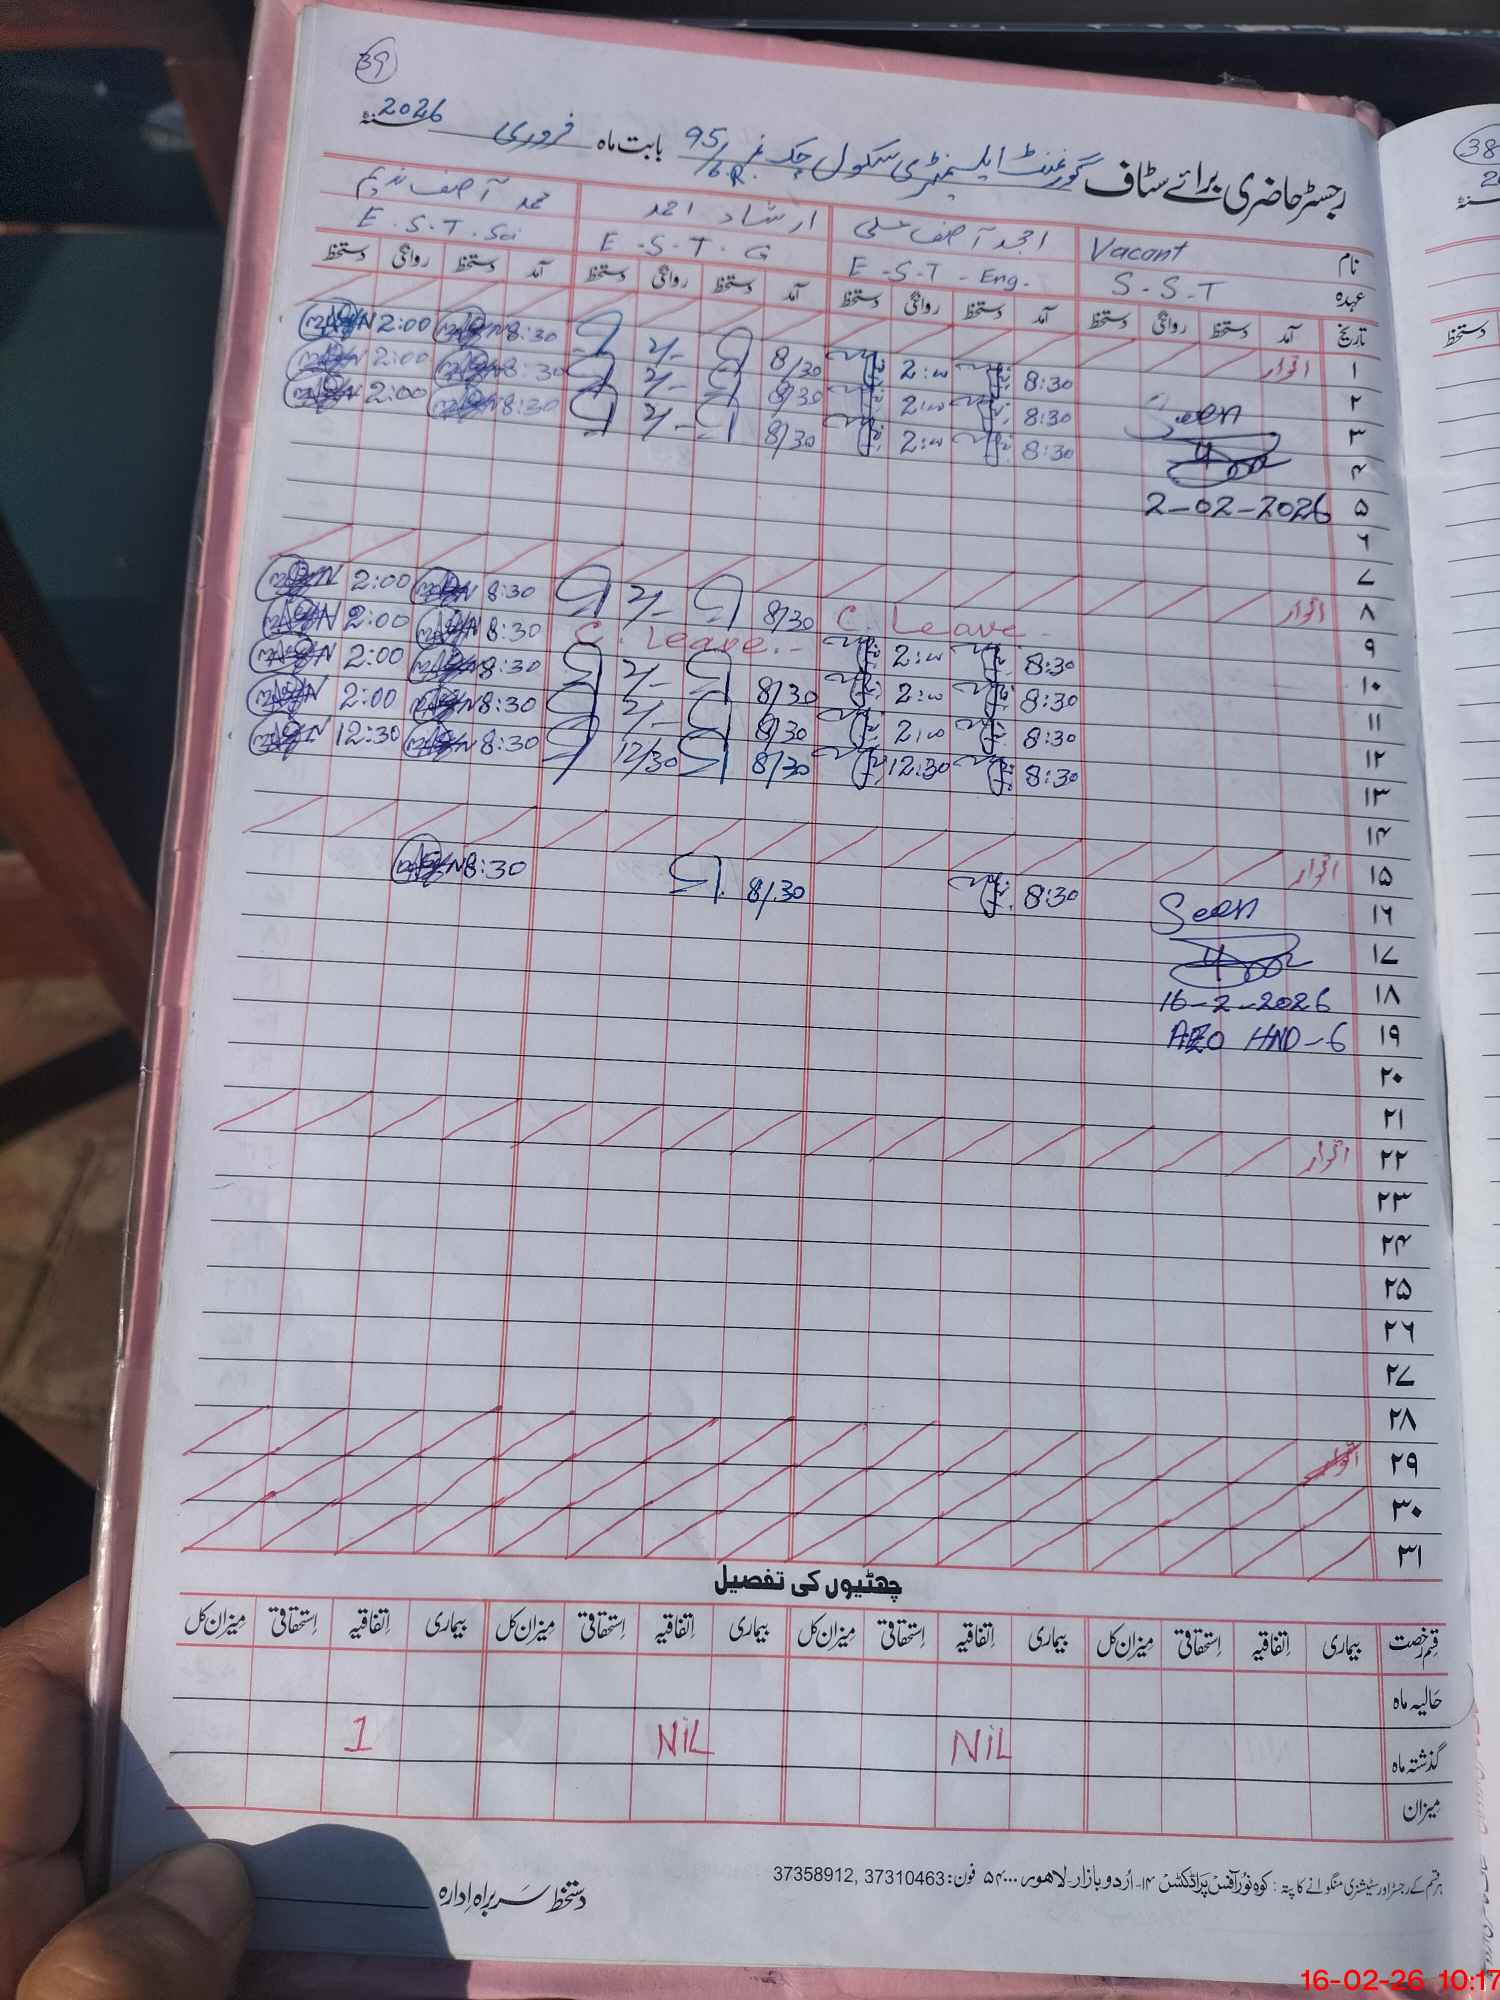 39
رجسٹر حاضری برائے سٹاف گورنمنٹ ایلیمنٹری سکول چک نمبر 95/6.R بابت ماہ فروری سنہ 2026
نام Vacant امجد آصف علی ارشاد احمد محمد آصف ندیم
عہدہ S-S-T E-S-T-Eng. E-S-T-G E.S.T.Sci
تاریخ آمد دستخط روانگی دستخط آمد دستخط روانگی دستخط آمد دستخط روانگی دستخط آمد دستخط روانگی دستخط
۱ اتوار
۲ 8:30 2:00 8/30 2/- 8:30 2:00
۳ Seen 8:30 2:00 8/30 2/- 8:30 2:00
۴ 8:30 2:00 8/30 2/- 8:30 2:00
۵ 2-02-2026
۶
۷
۸ اتوار
۹ C. Leave 8/30 2/- 8:30 2:00
۱۰ 8:30 2:00 C. Leave.- 8:30 2:00
۱۱ 8:30 2:00 8/30 2/- 8:30 2:00
۱۲ 8:30 2:00 8/30 2/- 8:30 2:00
۱۳ 8:30 12:30 8/30 12/30 8:30 12:30
۱۴
۱۵ اتوار
۱۶ Seen 8:30 8/30 8:30
۱۷
۱۸ 16-2-2026
۱۹ AEO HND-6
۲۰
۲۱
۲۲ اتوار
۲۳
۲۴
۲۵
۲۶
۲۷
۲۸
۲۹ اتوار
۳۰
۳۱
چھٹیوں کی تفصیل
قسم رخصت بیماری اتفاقیہ استحقاقی میزان کل بیماری اتفاقیہ استحقاقی میزان کل بیماری اتفاقیہ استحقاقی میزان کل بیماری اتفاقیہ استحقاقی میزان کل
حالیہ ماہ
گذشتہ ماہ NIL NIL 1
میزان
ہر قسم کے رجسٹر اور سٹیشنری منگوانے کا پتہ : کوہ نور آفس پراڈکٹس ۱۴-اُردو بازار لاہور ۵۴۰۰۰ فون: 37310463 ,37358912
دستخط سربراہ ادارہ
38
دستخط
16-02-26 10:17